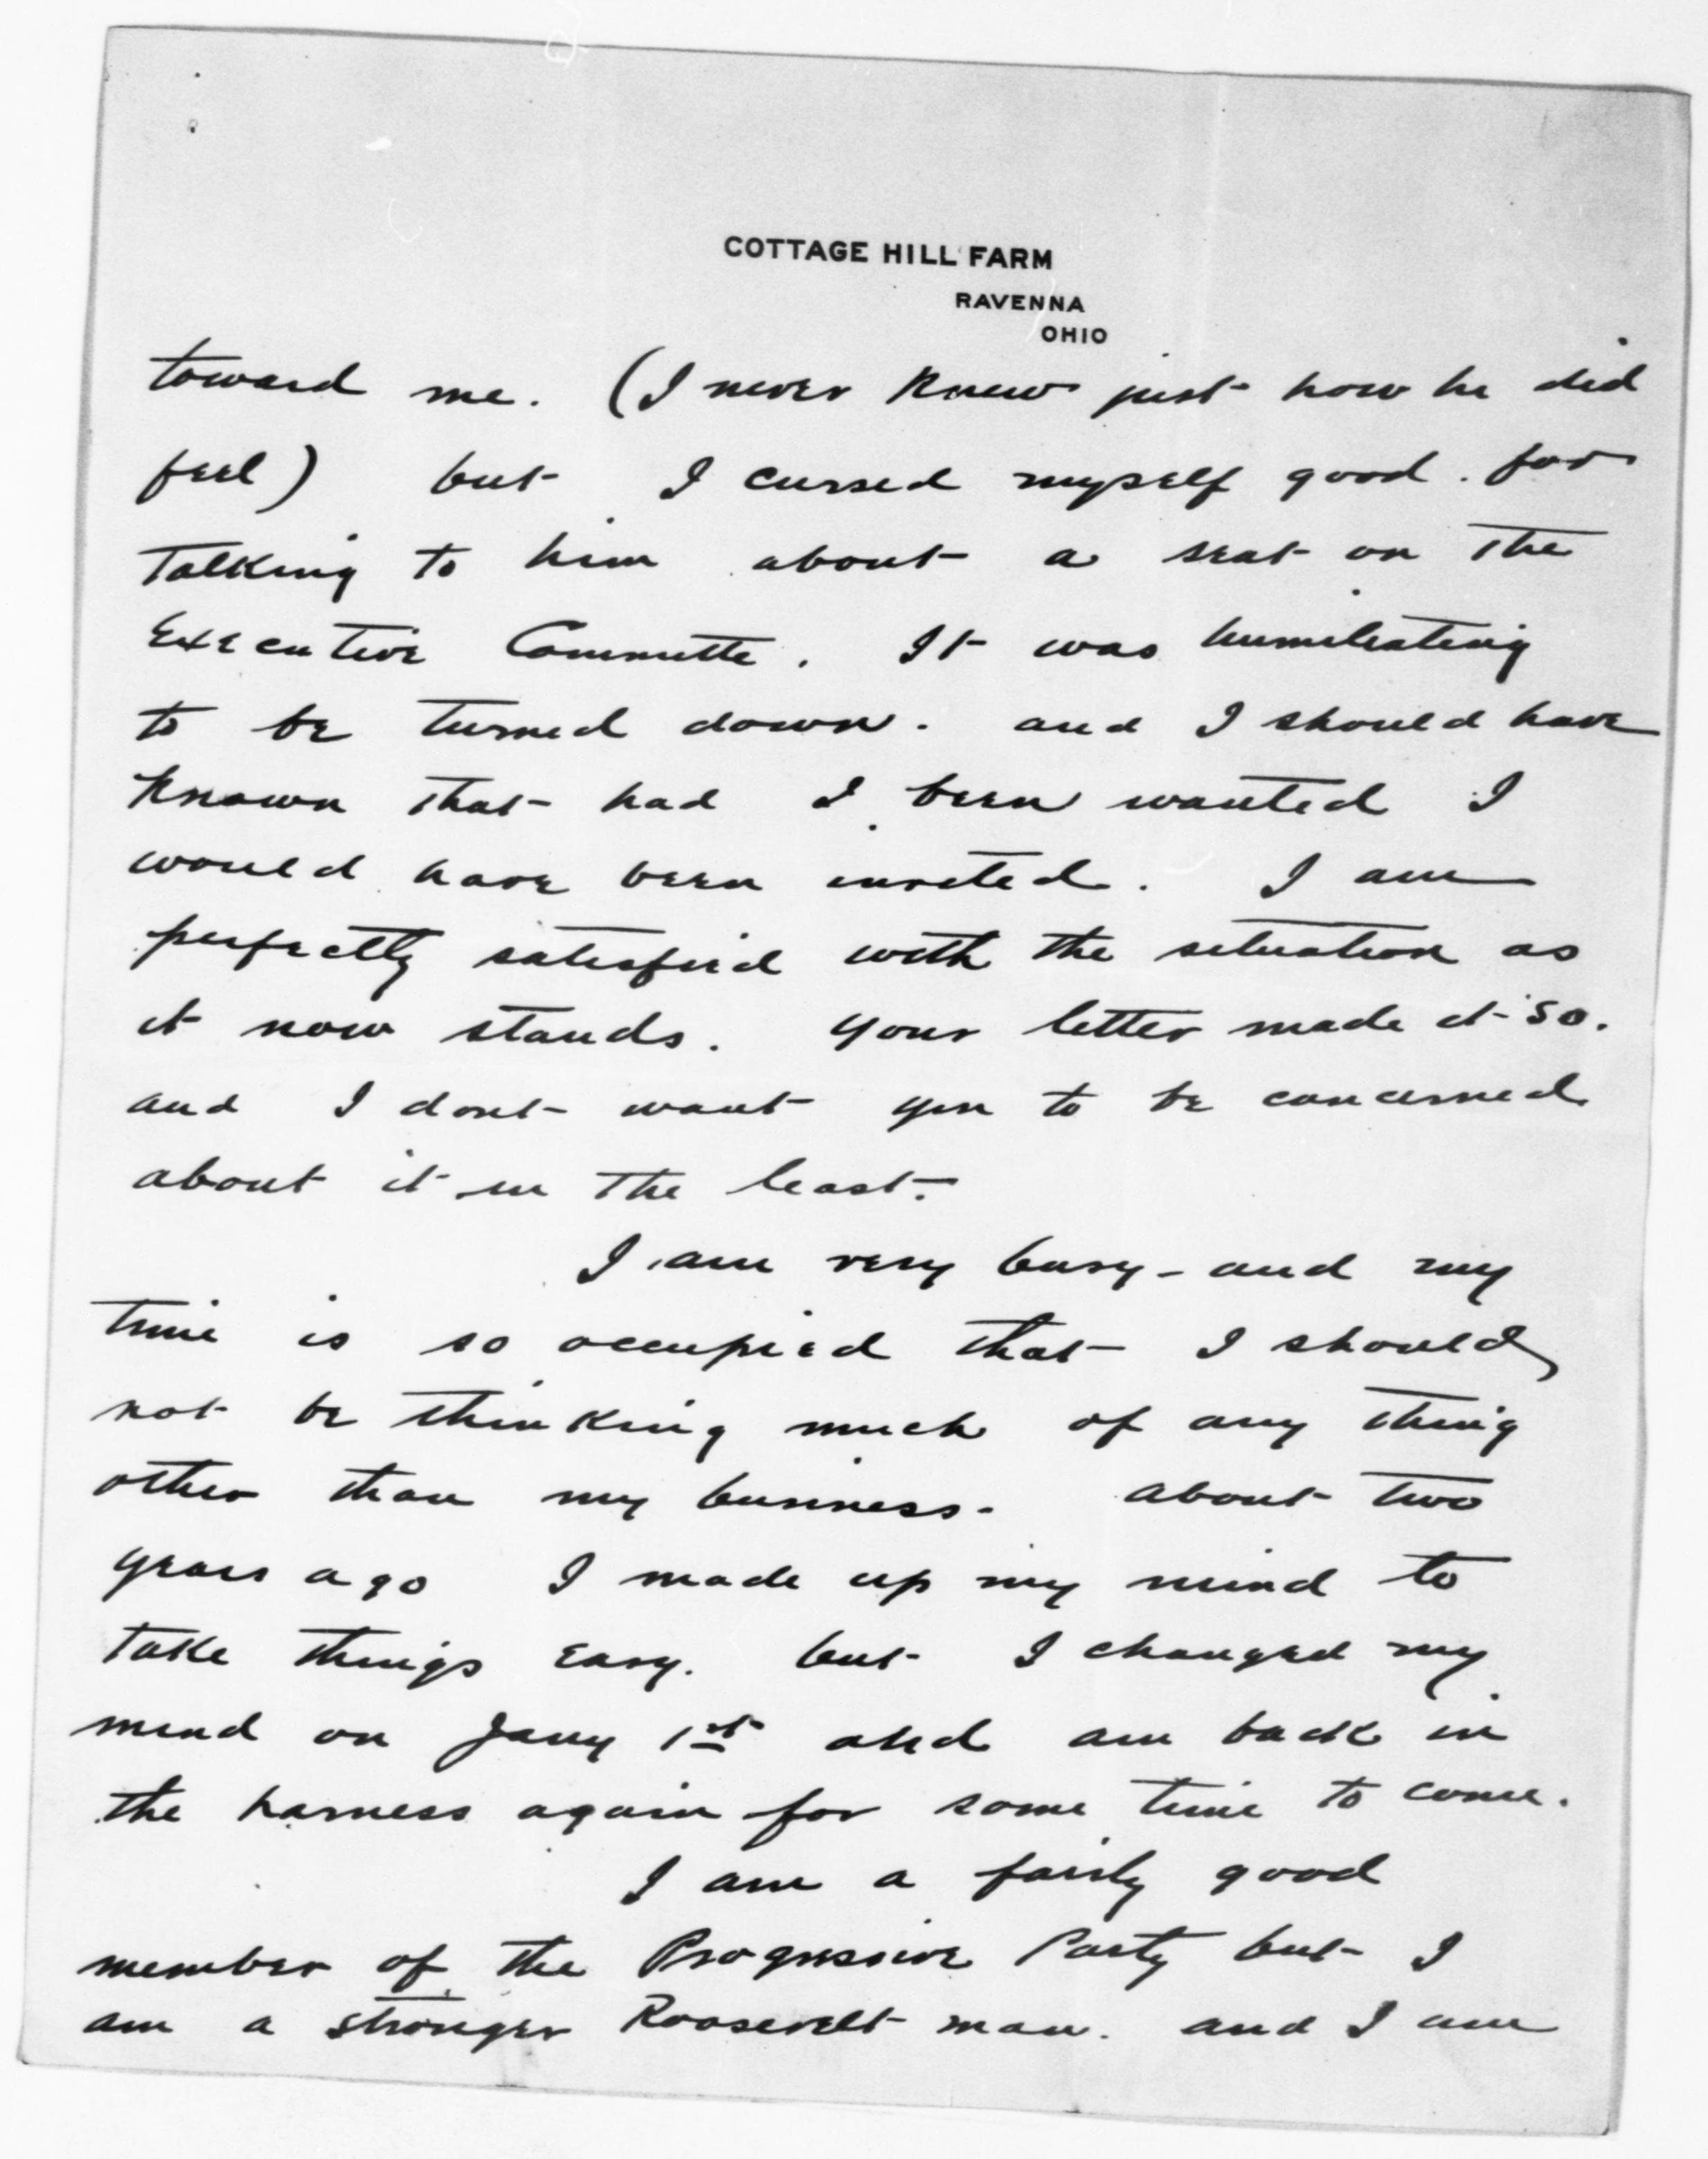 COTTAGE HILL FARM
RAVENNA
OHIO
toward me. (I never knew just how he did
feel) but I cursed myself good. for
talking to him about a seat on the
Executive Committe. It was humiliating
to be turned down. and I should have
known that had I been wanted I
would have been invited. I am
perfectly satisfied with the situation as
it now stands. your letter made it so.
and I dont want you to be concerned
about it in the least.
I am very busy - and my
time is so occupied that I should
not be thinking much of any thing
other than my business. about two
years ago I made up my mind to
take things easy. but I changed my
mind on Jany 1st and am back in
the harness again for some time to come.
I am a fairly good
member of the Progressive Party but I
am a stronger Roosevelt man. and I am